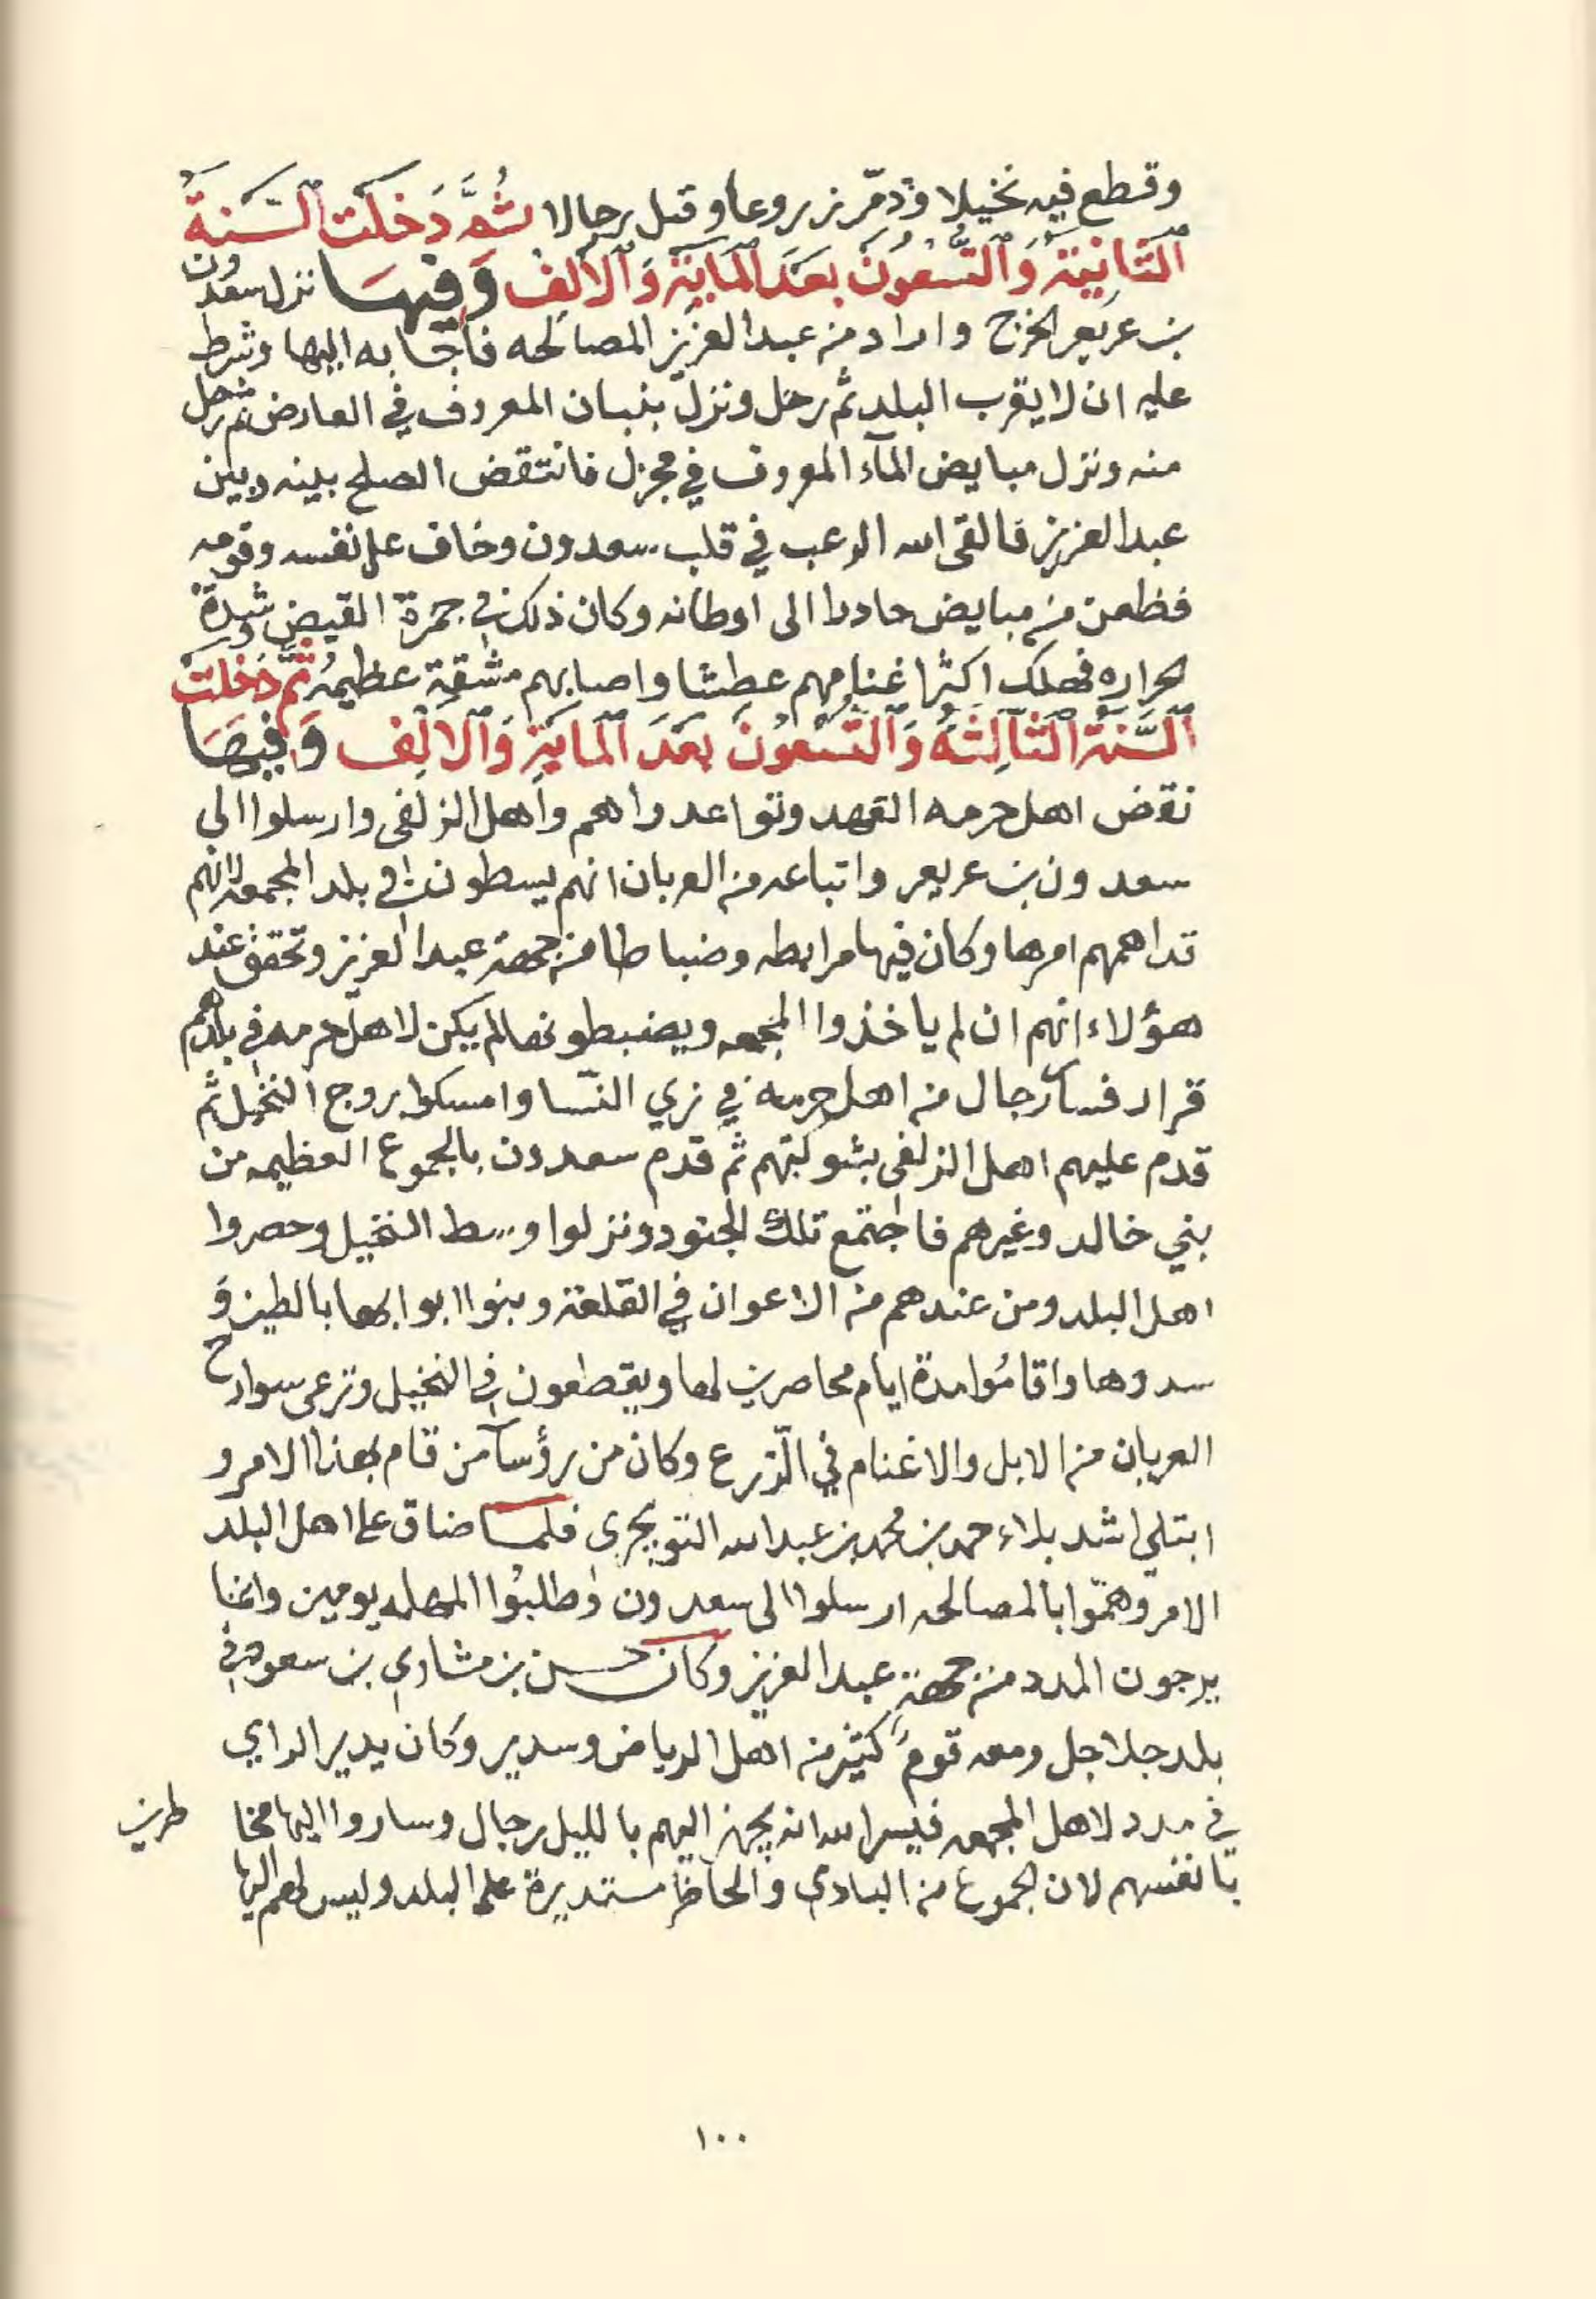 وقطع فيه نخيلا ودمّر زروعا وقتل رجالا ثُمَّ دَخَلَت السَّنةُ
الثَّانِيَة وَالتِّسْعُونَ بَعدَ المَايَة وَالالف وَفِيهَا نزل سعدون
بن عريعر الخرج واراد من عبد العزيز المصالحه فاجابه اليها وشرط
عليه ان لا يقرب البلد ثم رحل ونزل بنبان المعروف في العارض ثم رحل
منه ونزل مبايض المآء المعروف في مجزل فانتقض الصلح بينه وبين
عبد العزيز فالقى الله الرعب في قلب سعدون وخاف على نفسه وقومه
فظعن من مبايض حادرا الى اوطانه وكان ذلك في جمرة القيض وشدة
الحراره فهلك اكثر اغنامهم عطشا واصابهم مشقة عظيمه ثُمَّ دَخَلت
السَّنَة الثَّالِثَه وَالتِّسعُونَ بَعدَ المَايَة وَالالف وَفِيهَا
نقض اهل حرمه العهد وتواعدوا هم واهل الزلفى وارسلوا الى
سعدون بن عريعر واتباعه من العربان انهم يسطون في بلد المجمعه لانهم
تداهمهم امرها وكان فيها مرابطه وضباطا من جهة عبد العزيز وتحقق عند
هؤلاء انهم ان لم ياخذوا المجمعه ويضبطونها لم يكن لاهل حرمه في بلادهم
قرار فسار رجال من اهل حرمه في زي النسا وامسكوا بروج النخيل ثم
قدم عليهم اهل الزلفى بشوكتهم ثم قدم سعدون بالجموع العظيمه من
بني خالد وغيرهم فاجتمع تلك الجنود ونزلوا وسط النخيل وحصروا
اهل البلد ومن عندهم من الاعوان في القلعة وبنوا ابوابها بالطين و
سدوها واقاموا مدة ايام محاصرين لها ويقطعون في النخيل وترعى سوارح
العربان من الابل والاغنام في الزرع وكان من رؤسآ من قام بهذا الامر و
ابتلي اشد بلاء حمد بن محمد بن عبد الله التويجرى فلما ضاق على اهل البلد
الامر وهمّوا بالمصالحه ارسلوا الى سعدون وطلبوا المهله يومين وانما
يرجون المدد من جهة عبد العزيز وكان حسن بن مشاري بن سعود في
بلد جلاجل ومعه قوم كثير من اهل الرياض وسدير وكان يدير الراي
في مدد لاهل المجمعه فيسر الله انه يجهز اليهم بالليل رجال وساروا اليها مخا
طرين
بانفسهم لان الجموع من البادي والحاضر مستديرة على البلد وليس لهم اليها
١٠٠